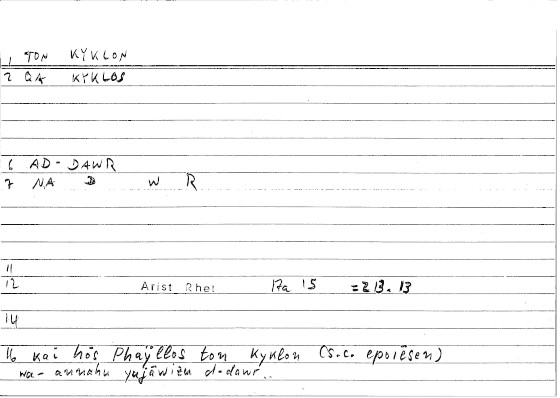 1 TON KYKLON
2 QA KYKLOS
6 AD-DAWR
7 NA D W R
11
12 Arist Rhet 17a 15 =213.13
14
16 kai hōs Phaÿllos ton kyklon (s.c. epoiēsen)
wa-annahu yujāwizu d-dawr..